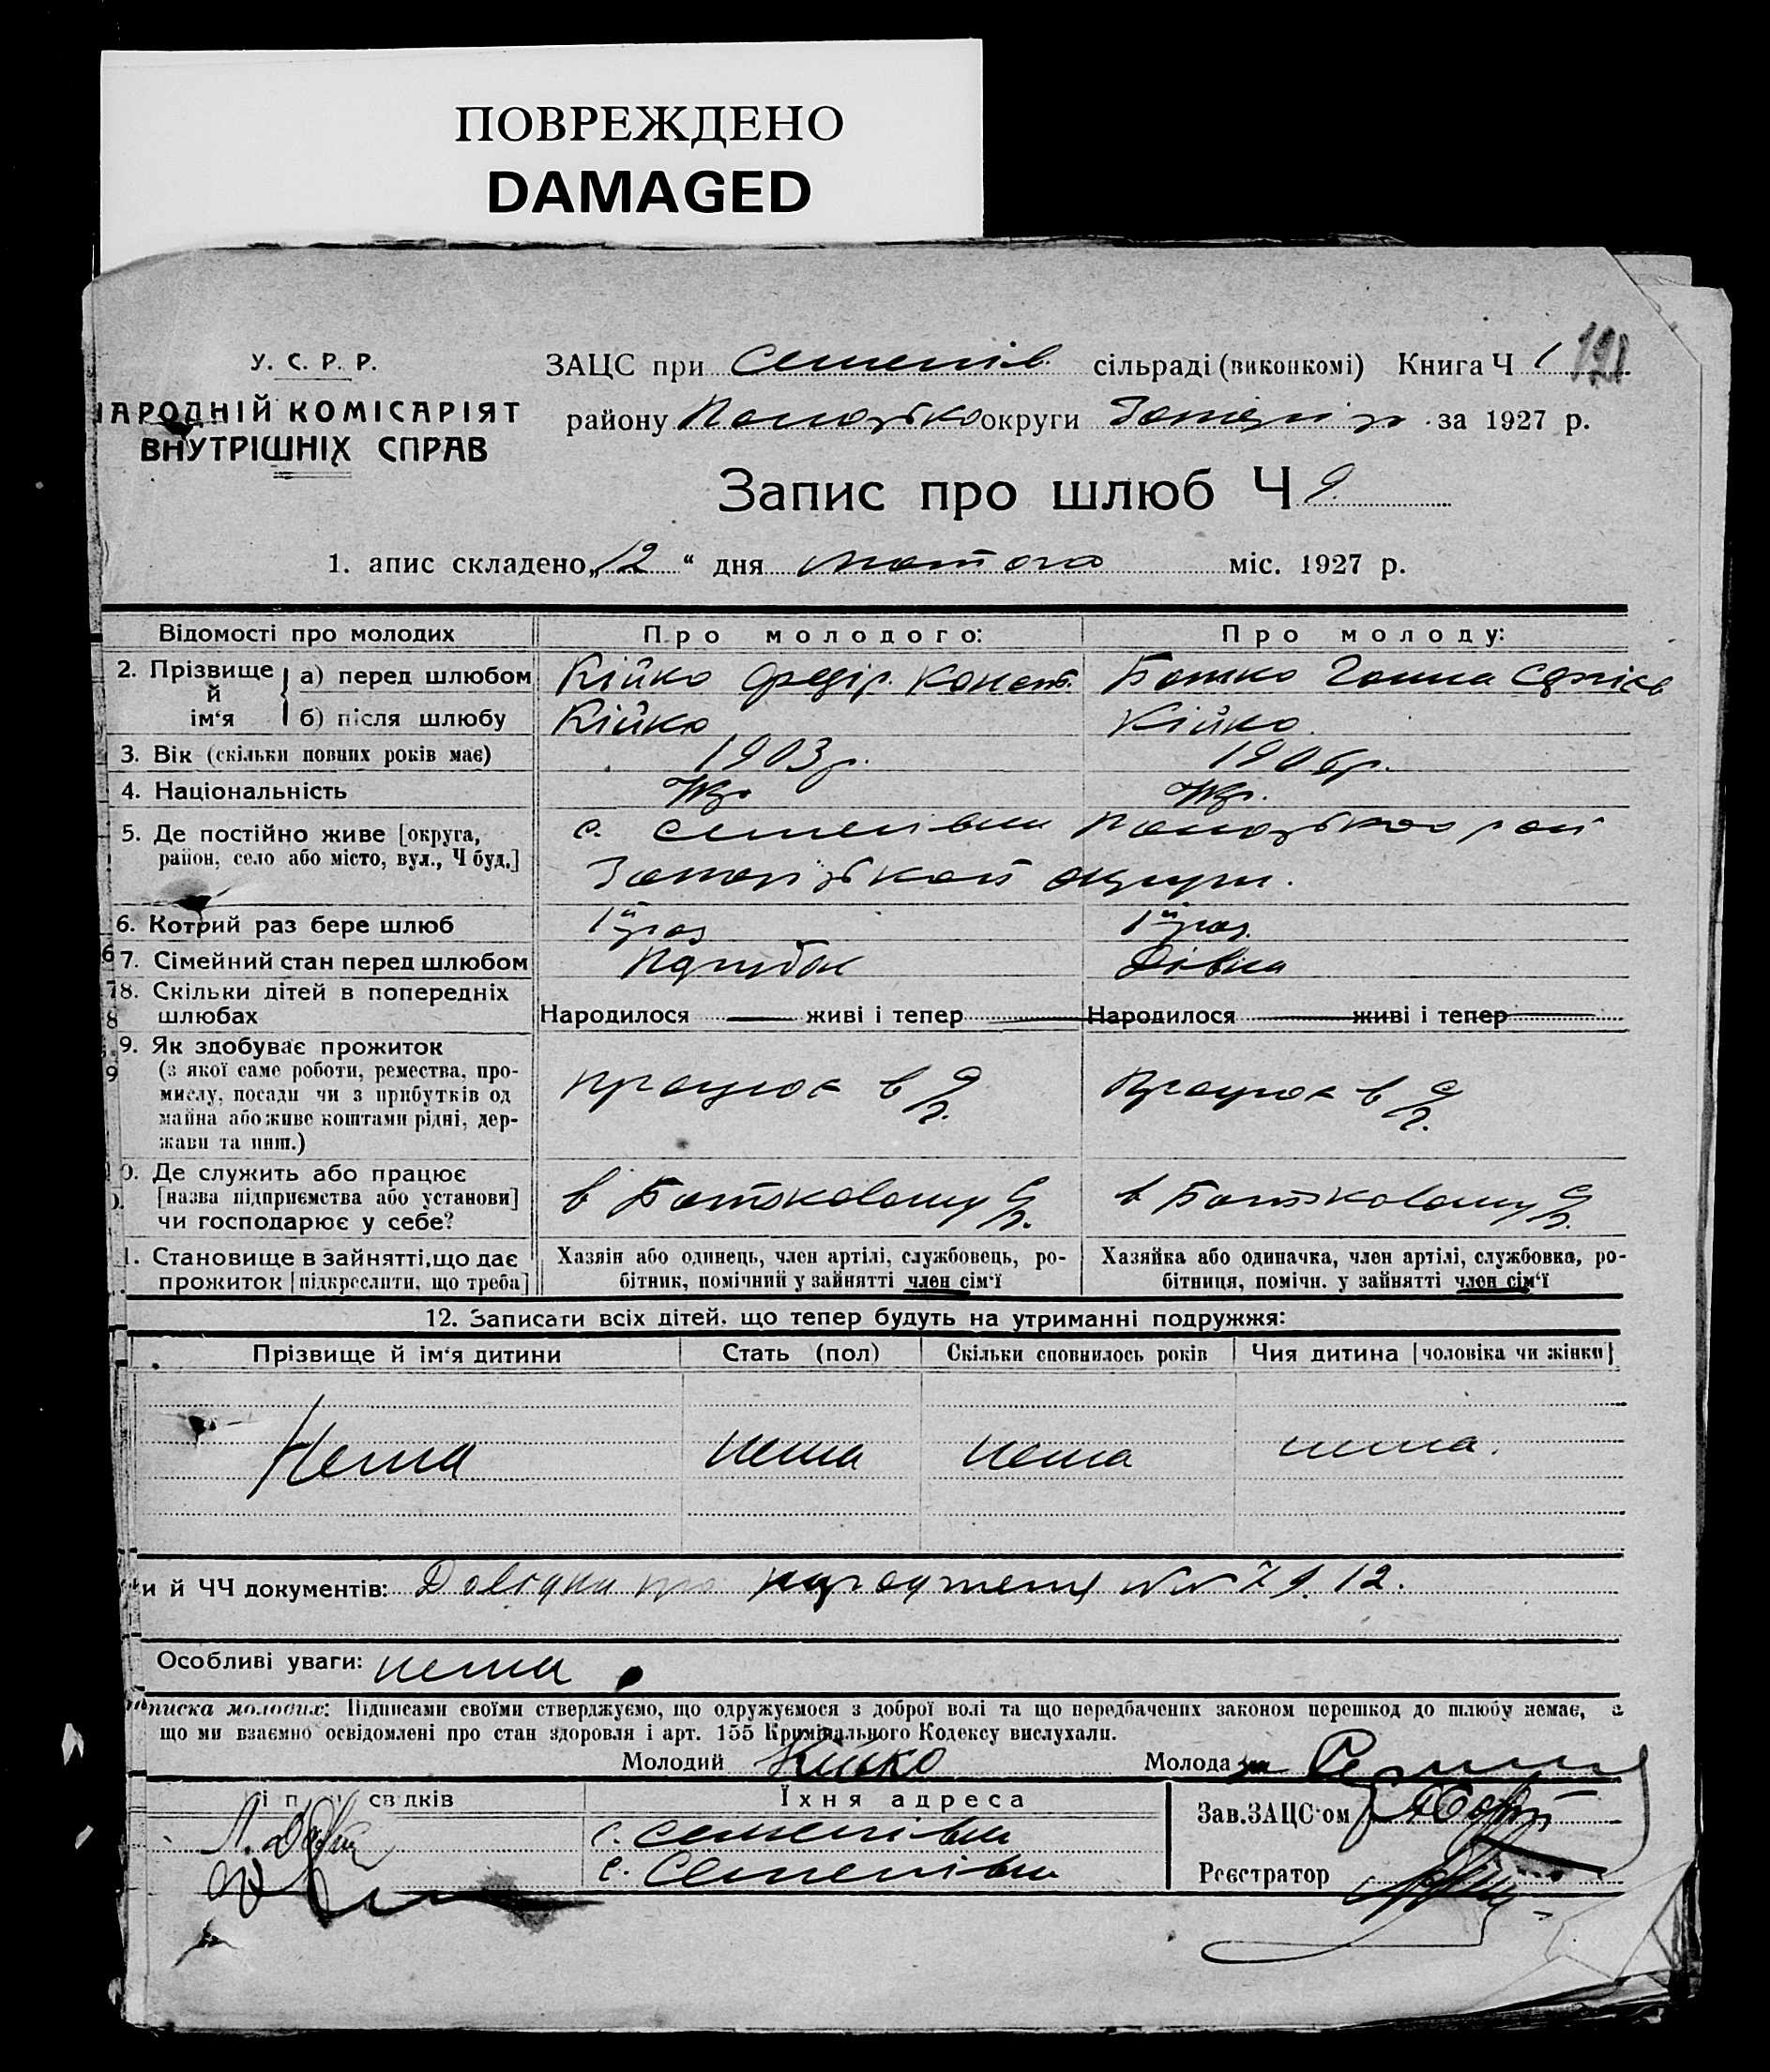 ПОВРЕЖДЕНО
DAMAGED
У. С. Р. Р.
НАРОДНІЙ КОМІСАРІЯТ
ВНУТРІШНІХ СПРАВ
ЗАЦС при Семенів. сільраді (виконкомі) Книга Ч 1
району округи за 1927 р.
Запис про шлюб Ч 9.
1. апис складено „12“ дня лютого міс. 1927 р.
Відомості про молодих Про молодого: Про молоду:
2. Прізвище й ім‘я а) перед шлюбом Кійко Федір. Конст. Ганна
б) після шлюбу Кійко Кійко.
3. Вік (скільки повних років має) 1903 р. 1906 р.
4. Національність Укр. Укр.
5. Де постійно живе [округа, с. Семенівки
район, село або місто, вул., Ч буд.] Запорізькой округи.
6. Котрий раз бере шлюб 1й раз 1й раз.
7. Сімейний стан перед шлюбом Парубок Дівка
8. Скільки дітей в попередніх
шлюбах Народилося — живі і тепер — Народилося — живі і тепер —
9. Як здобуває прожиток
(з якої саме роботи, ремества, про-
мислу, посади чи з прибутків од працює в працює в
майна або живе коштами рідні, дер-
жави та инш.)
0. Де служить або працює
[назва підприємства або установи] в Батьковому в Батьковому
чи господарює у себе?
1. Становище в зайнятті, що дає Хазяін або одинець, член артілі, службовець, ро- Хазяйка або одиначка, член артілі, службовка, ро-
прожиток [підкреслити, що треба] бітник, помічний у зайнятті член сім‘ї бітниця, помічн. у зайнятті член сім‘ї
12. Записати всіх дітей, що тепер будуть на утриманні подружжя:
Прізвище й ім‘я дитини Стать (пол) Скільки сповнилось років Чия дитина [чоловіка чи жінки]
Нема нема нема нема.
и й ЧЧ документів: Довідки про народження №№ 7 9. 12.
Особливі уваги: нема
писка молодих: Підписами своїми стверджуємо, що одружуємося з доброї волі та що передбачених законом перешкод до шлюбу немає, а
що ми взаємно освідомлені про стан здоровля і арт. 155 Кримінального Кодексу вислухали.
Молодий Кійко Молода
свідків Їхня адреса Зав. ЗАЦС‘ом
с. Семенівки
с. Семенівки Реєстратор